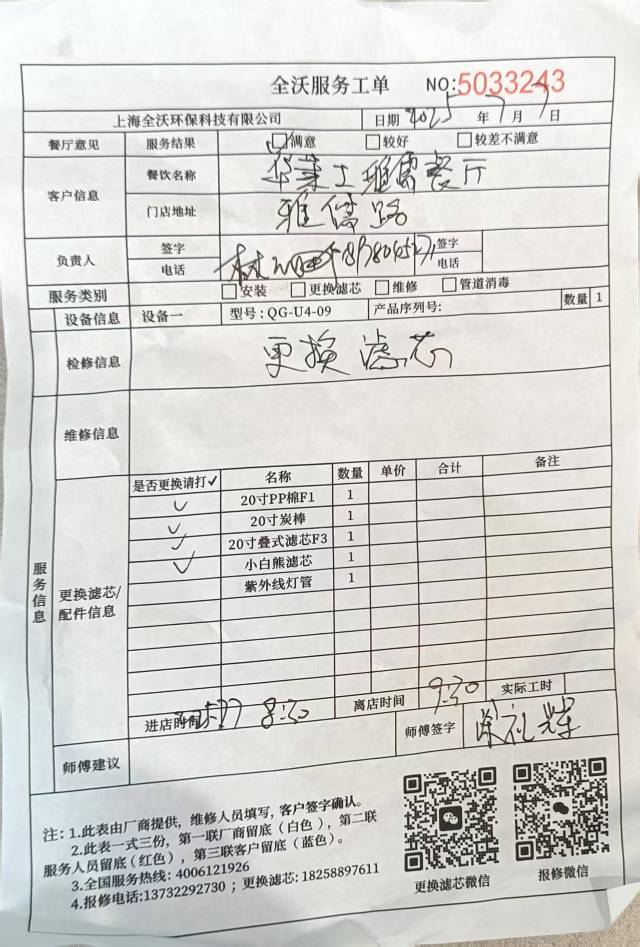 全沃服务工单 NO:5033243
上海全沃环保科技有限公司 日期 2025 年 7 月 7
餐厅意见 服务结果 满意 较好 较差不满意
客户信息 餐饮名称 华莱士雅儒餐厅
门店地址 雅儒路
负责人 签字 签字
电话 电话
服务类别 安装 更换滤芯 维修 管道消毒
设备信息 设备一 型号：QG-U4-09 产品序列号: 数量 1
检修信息 更换滤芯
维修信息
服务信息
更换滤芯/配件信息
是否更换请打✓ 名称 数量 单价 合计 备注
✓ 20寸PP棉F1 1
✓ 20寸炭棒 1
✓ 20寸叠式滤芯F3 1
✓ 小白熊滤芯 1
紫外线灯管 1
进店时间 8:30 离店时间 9:30 实际工时
师傅建议 师傅签字
注：1.此表由厂商提供，维修人员填写，客户签字确认。
2.此表一式三份，第一联厂商留底（白色），第二联
服务人员留底（红色），第三联客户留底（蓝色）。
3.全国服务热线: 4006121926
4.报修电话:13732292730；更换滤芯: 18258897611
更换滤芯微信 报修微信